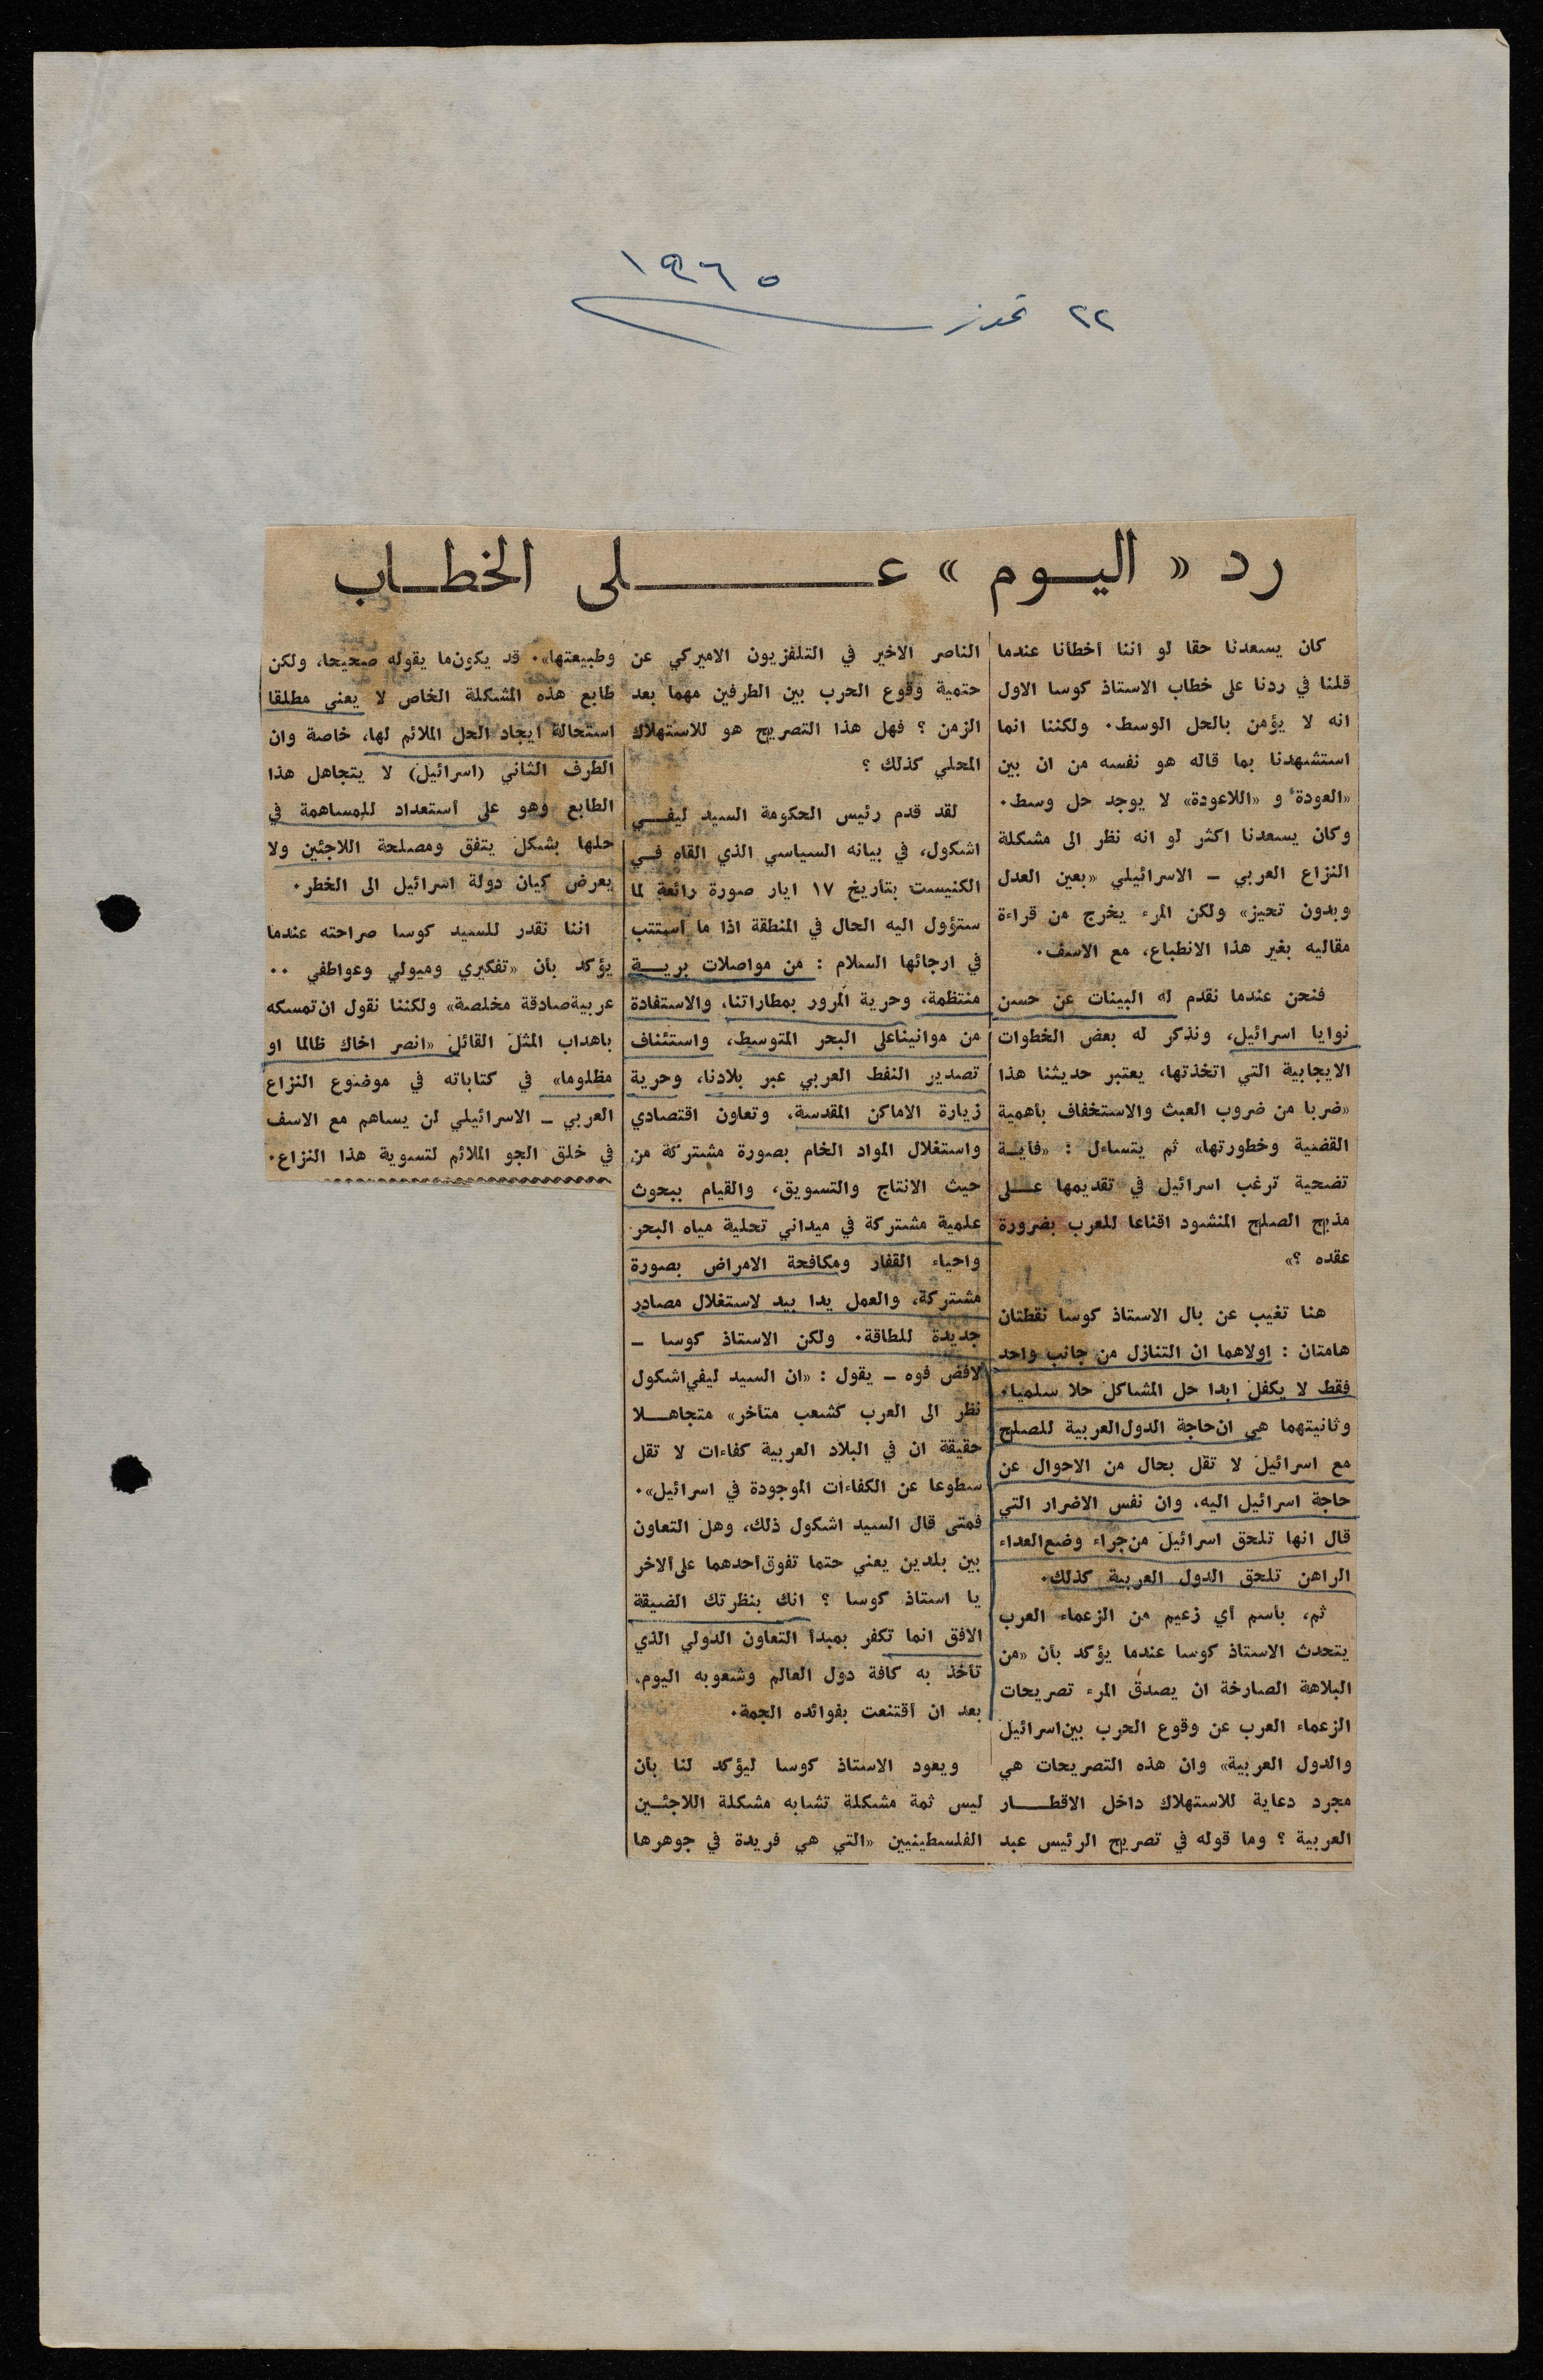 ١٩٦٥
٢٢ تموز
رد « اليـوم » عــــــلى الخطـاب
كان يسعدنا حقا لو اننا أخطأنا عندما
قلنا في ردنا على خطاب الاستاذ كوسا الاول
انه لا يؤمن بالحل الوسط. ولكننا انما
استشهدنا بما قاله هو نفسه من ان بين
«العودة» و «اللاعودة» لا يوجد حل وسط.
وكان يسعدنا اكثر لو انه نظر الى مشكلة
النزاع العربي ـ الاسرائيلي «بعين العدل
وبدون تحيز» ولكن المرء يخرج من قراءة
مقاليه بغير هذا الانطباع، مع الاسف.
فنحن عندما نقدم له البينات عن حسن
نوايا اسرائيل، ونذكر له بعض الخطوات
الايجابية التي اتخذتها، يعتبر حديثنا هذا
«ضربا من ضروب العبث والاستخفاف بأهمية
القضية وخطورتها» ثم يتساءل : «فأيـة
تضحية ترغب اسرائيل في تقديمها عــلى
مذبح الصلح المنشود اقناعا للعرب بضرورة
عقده ؟»
هنا تغيب عن بال الاستاذ كوسا نقطتان
هامتان : اولاهما ان التنازل من جانب واحد
فقط لا يكفل ابدا حل المشاكل حلا سلميا.
وثانيتهما هي ان حاجة الدول العربية للصلح
مع اسرائيل لا تقل بحال من الاحوال عن
حاجة اسرائيل اليه، وان نفس الاضرار التي
قال انها تلحق اسرائيل من جراء وضع العداء
الراهن تلحق الدول العربية كذلك.
ثم، بأسم أي زعيم من الزعماء العرب
يتحدث الاستاذ كوسا عندما يؤكد بأن «من
البلاهة الصارخة ان يصدق المرء تصريحات
الزعماء العرب عن وقوع الحرب بين اسرائيل
والدول العربية» وان هذه التصريحات هي
مجرد دعاية للاستهلاك داخل الاقطــار
العربية ؟ وما قوله في تصريح الرئيس عبد
الناصر الاخير في التلفزيون الاميركي عن
حتمية وقوع الحرب بين الطرفين مهما بعد
الزمن ؟ فهل هذا التصريح هو للاستهلاك
المحلي كذلك ؟
لقد قدم رئيس الحكومة السيد ليفـي
اشكول، في بيانه السياسي الذي القاه فـي
الكنيست بتأريخ ١٧ ايار صورة رائعة لما
ستؤول اليه الحال في المنطقة اذا ما استتب
في ارجائها السلام : من مواصلات بريـة
منتظمة، وحرية المرور بمطاراتنا، والاستفادة
من موانينا على البحر المتوسط، واستئناف
تصدير النفط العربي عبر بلادنا، وحرية
زيارة الاماكن المقدسة، وتعاون اقتصادي
واستغلال المواد الخام بصورة مشتركة من
حيث الانتاج والتسويق، والقيام ببحوث
علمية مشتركة في ميداني تحلية مياه البحر
واحياء القفار ومكافحة الامراض بصورة
مشتركة، والعمل يدا بيد لاستغلال مصادر
جديدة للطاقة. ولكن الاستاذ كوسا ـ
لافض فوه ـ يقول : «ان السيد ليفي اشكول
نظر الى العرب كشعب متأخر» متجاهـلا
حقيقة ان في البلاد العربية كفاءات لا تقل
سطوعا عن الكفاءات الموجودة في اسرائيل».
فمتى قال السيد اشكول ذلك، وهل التعاون
بين بلدين يعني حتما تفوق احدهما على الاخر
يا استاذ كوسا ؟ انك بنظرتك الضيقة
الافق انما تكفر بمبدأ التعاون الدولي الذي
تأخذ به كافة دول العالم وشعوبه اليوم،
بعد ان أقتنعت بفوائده الجمة.
ويعود الاستاذ كوسا ليؤكد لنا بأن
ليس ثمة مشكلة تشابه مشكلة اللاجئـين
الفلسطينيين «التي هي فريدة في جوهرها
وطبيعتها». قد يكون ما يقوله صحيحا، ولكن
طابع هذه المشكلة الخاص لا يعني مطلقا
استحالة ايجاد الحل الملائم لها، خاصة وان
الطرف الثاني (اسرائيل) لا يتجاهل هذا
الطابع وهو على أستعداد للمساهمة في
حلها بشكل يتفق ومصلحة اللاجئين ولا
يعرض كيان دولة اسرائيل الى الخطر.
اننا نقدر للسيد كوسا صراحته عندما
يؤكد بأن «تفكيري وميولي وعواطفي ..
عربية صادقة مخلصة» ولكننا نقول ان تمسكه
باهداب المثل القائل «انصر اخاك ظالما او
مظلوما» في كتاباته في موضوع النزاع
العربي ـ الاسرائيلي لن يساهم مع الاسف
في خلق الجو الملائم لتسوية هذا النزاع.